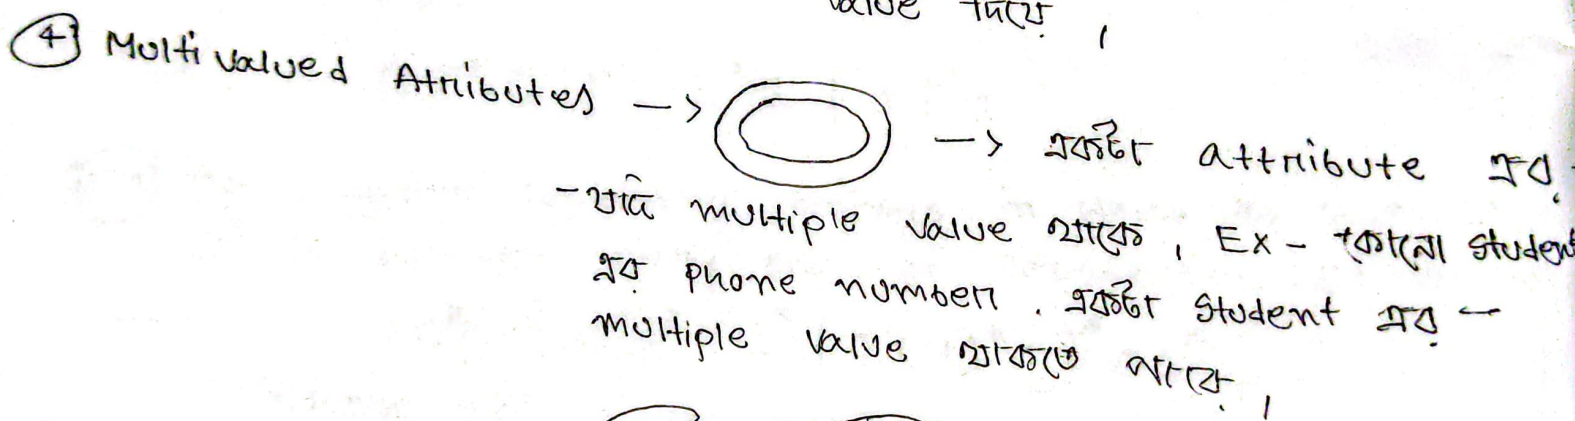 value দিয়ে।
④ Multivalued Atributes -> -> একটা attribute এর
- যদি multiple value থাকে, Ex - কোনো student
এর phone number. একটা student এর -
multiple value থাকতে পারে।